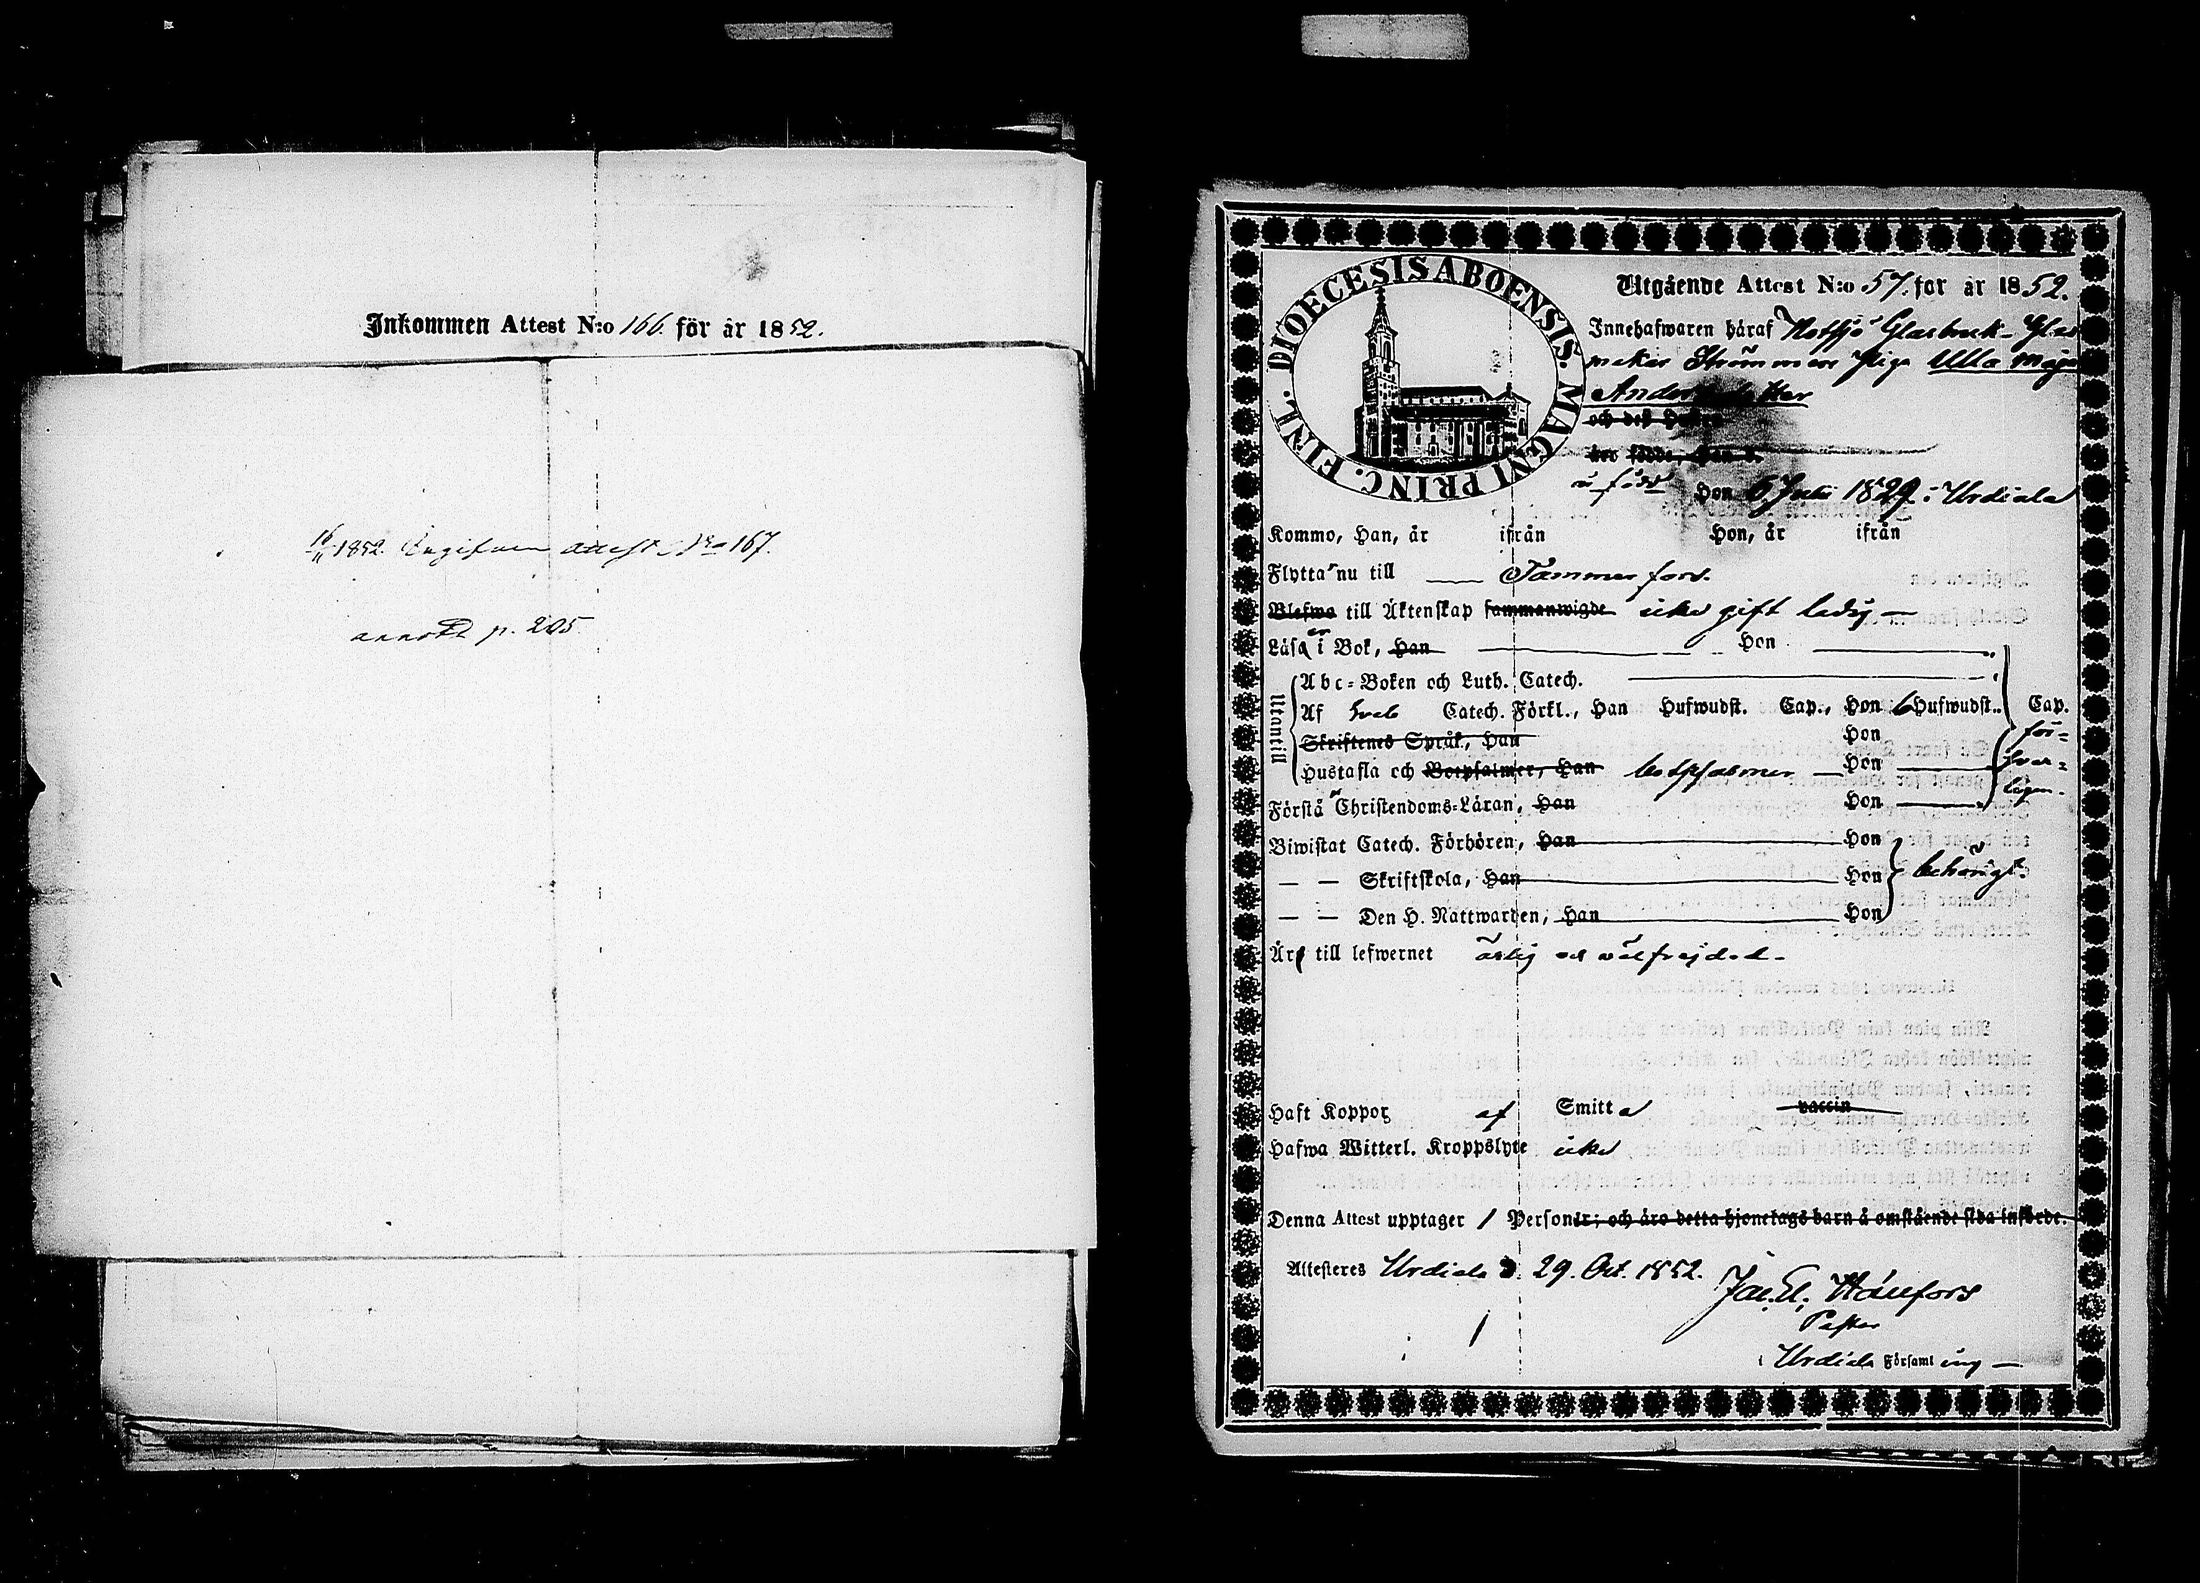 Inkommen Attest N:o 166. för år 1852.
16/11 1852. Ingifven attest No 167.
annotd p. 205.
DIOECESIS ABOENSIS. MAGNI PRINC. FINL.
Utgående Attest N:o 57. för år 1852.
Innehafwaren häraf Notsjö Glasbruk- Glas
makar Strömmers Piga Ulla Maja
Andersdotter
och deß
äro födde, Han d.
är född Hon 6 1829 i Urdiala
Kommo, Han, år ifrån Hon, år ifrån
Flyttar nu till Tammerfors.
Blefwo till Äktenskap sammanwigde icke gift ledig
Läser i Bok, Han Hon
Utantill
Abc-Boken och Luth. Catech.
Af Sveb Catech. Förkl., Han Hufwudst. Cap., Hon 6 Hufwudst. Cap.
Skriftenes Språk, Han Hon för-
Hustafla och Botpsalmer, Han botpsalmer Hon svar-
Förstår Christendoms-Läran, Han Hon ligen.
Biwistat Catech. Förhören, Han Hon
— — Skriftskola, Han Hon behörigt.
— — Den H. Nattwarden, Han Hon
Är till lefwernet ärlig och välfrejdad.
Haft Koppor af Smitta vaccin
Hafwa Witterl. Kroppslyte icke
Denna Attest upptager 1 Personer; och äro detta hjonelags barn å omstående sida införde.
Attesteres Urdiala d. 29. Oct. 1852.
Pastor
i Urdiala Församling